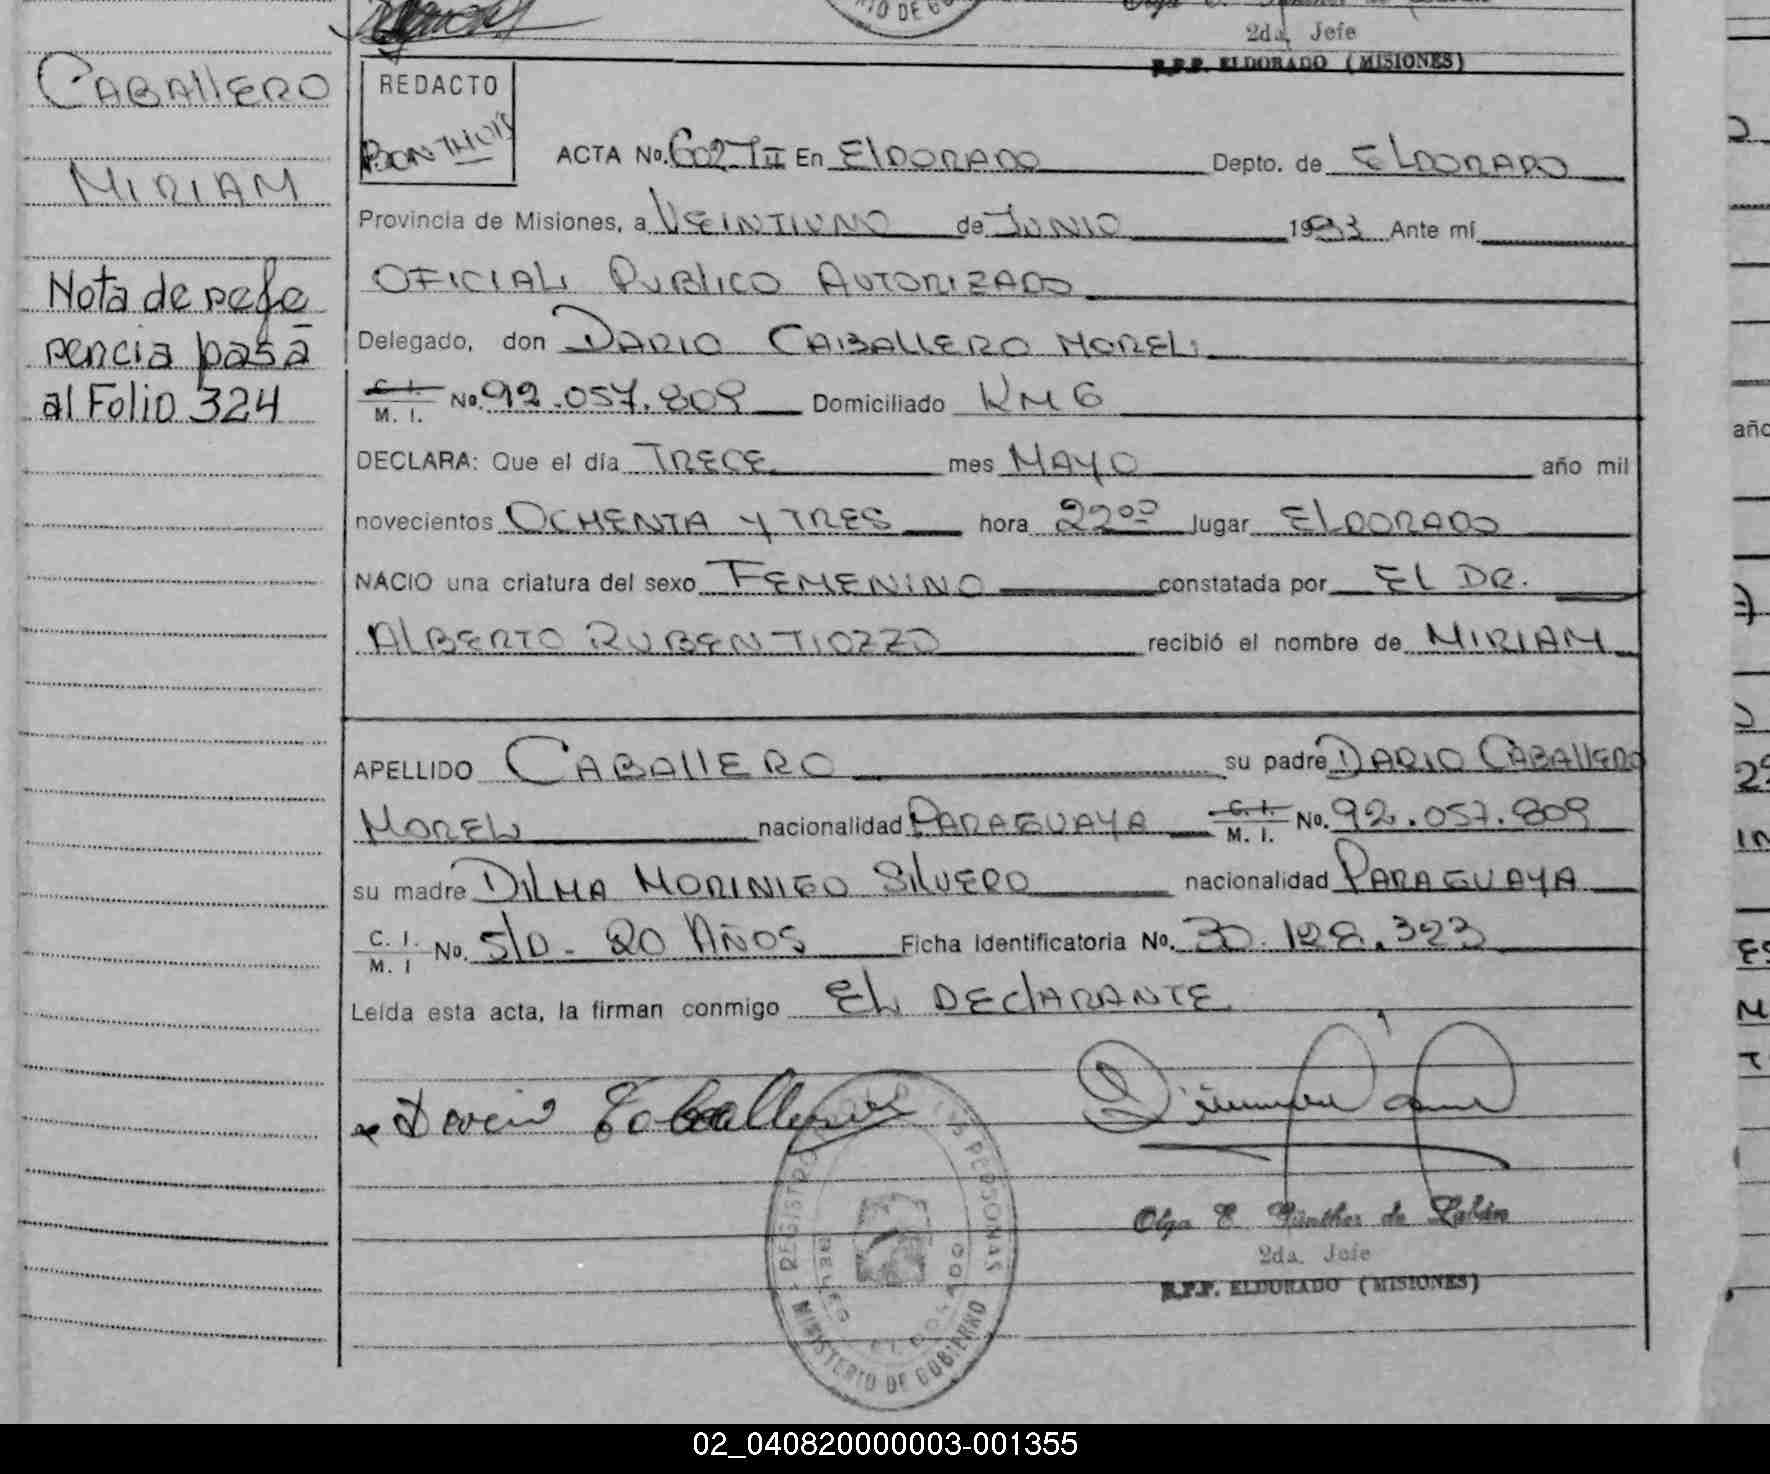 2da. Jefe
R.P.P. ELDORADO (MISIONES)
CABALLERO
MIRIAM
Nota de refe
rencia pasa
al Folio 324
REDACTO
ACTA No. 602 T II En ELDORADO Depto. de ELDORADO
Provincia de Misiones, a VEINTIUNO de JUNIO 1983 Ante mí
OFICIAL PUBLICO AUTORIZADO
Delegado, don DARIO CABALLERO MOREL
C. I.
M. I. No. 92.057.809 Domiciliado KM 6
DECLARA: Que el día TRECE mes MAYO año mil
novecientos OCHENTA Y TRES hora 22oo lugar ELDORADO
NACIO una criatura del sexo FEMENINO constatada por EL DR.
ALBERTO RUBEN TIOZZO recibió el nombre de MIRIAM
APELLIDO CABALLERO su padre DARIO CABALLERO
MOREL nacionalidad PARAGUAYA C. I. M. I. No. 92.057.809
su madre DILMA MORINIGO SILVERO nacionalidad PARAGUAYA
C. I. M. I No. S/D - 20 AÑOS Ficha Identificatoria No. 30.128.323
Leída esta acta, la firman conmigo EL DECLARANTE
Dario Caballero
REGISTRO PERSONAS
MINISTERIO DE GOBIERNO
Olga E. Günther de
2da. Jefe
R.P.P. ELDORADO (MISIONES)
02_040820000003-001355